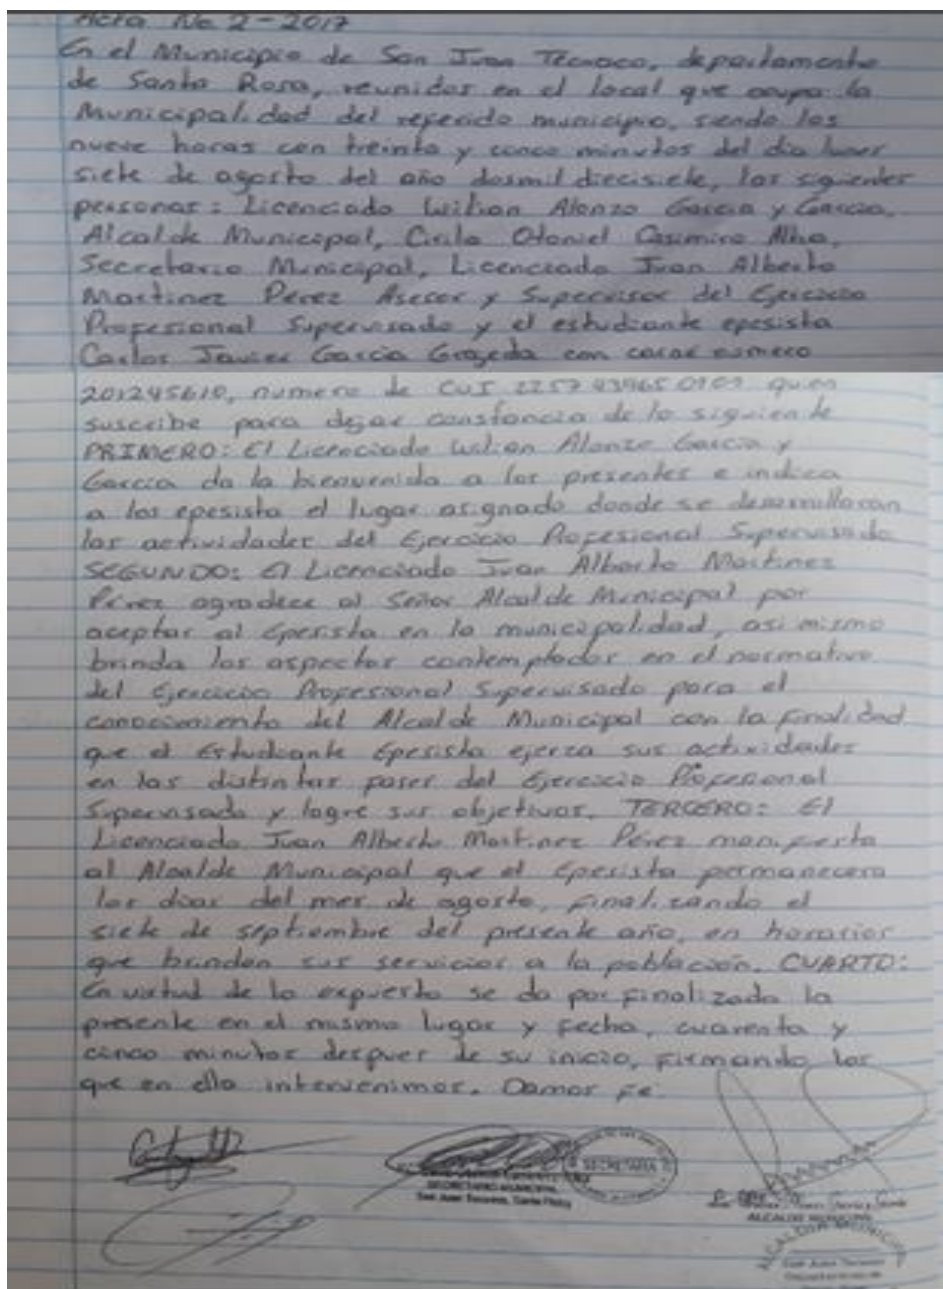 Acta No. 2-2017
En el Municipio de San Juan Tecuaco, departamento
de Santa Rosa, reunidos en el local que ocupa la
Municipalidad del referido municipio, siendo las
nueve horas con treinta y cinco minutos del dia lunes
siete de agosto del año dosmil diecisiete, las siguientes
personas: Licenciado Wilian Alonzo Garcia y Garcia,
Alcalde Municipal, Cirilo Otoniel Casimiro
Secretario Municipal, Licenciado Juan Alberto
Martinez Perez Asesor y Supervisor del Ejercicio
Profesional Supervisado y el estudiante epesista
Carlos Javier Garcia Grajeda con
numero de CUI quien
suscribe para dejar constancia de lo siguiente
PRIMERO: El Licenciado Wilian Alonzo Garcia y
Garcia da la bienvenida a los presentes e indica
a los epesista el lugar asignado donde se desarrollaran
las actividades del Ejercicio Profesional Supervisado
SEGUNDO: El Licenciado Juan Alberto Martinez
Pérez agradece al Señor Alcalde Municipal por
aceptar al Epesista en la municipalidad, asi mismo
brinda los aspectos contemplados en el normativo
del Ejercicio Profesional Supervisado para el
conocimiento del Alcalde Municipal con la finalidad
que el Estudiante Epesista ejerza sus actividades
en las distintas fases del Ejercicio Profesional
Supervisado y logre sus objetivos. TERCERO: El
Licenciado Juan Alberto Martinez Pérez manifiesta
al Alcalde Municipal que el Epesista permanecera
los dias del mes de agosto, finalizando el
siete de septiembre del presente año, en horarios
que brindan sus servicios a la población. CUARTO:
En virtud de lo expuesto se da por finalizada la
presente en el mismo lugar y fecha, cuarenta y
cinco minutos despues de su inicio, firmando los
que en ella intervenimos. Damos fe.
SECRETARIA
SECRETARIO MUNICIPAL
San Juan Tecuaco, Santa Rosa
ALCALDE MUNICIPAL
San Juan Tecuaco